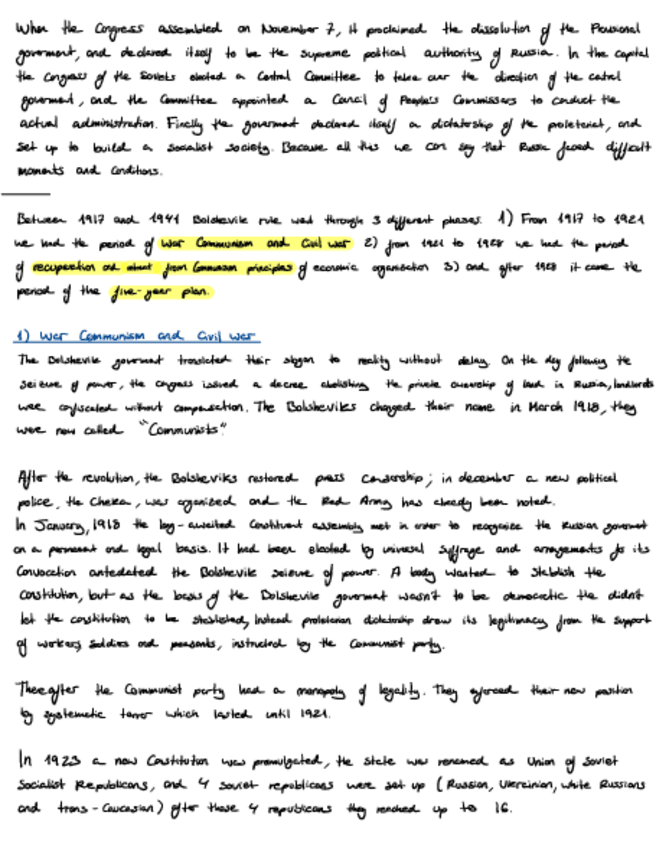 When the Congress assembled on November 7, it proclaimed the dissolution of the Provisional
goverment, and declared itself to be the supreme political authority of Russia. In the capital
the Congress of the Soviets elected a Central Committee to take over the direction of the
goverment, and the Committee appointed a Council of People's Commissars to conduct the
actual administration. Finally the goverment declared itself a dictatorship of the proletariat, and
set up to build a socialist society. Because all this we can say that Russia faced difficult
moments and conditions.
Between 1917 and 1941 Bolshevik rule went through 3 different phases. 1) From 1917 to 1921
we had the period of War Communism and Civil War 2) from 1921 to 1928 we had the period
of recuperation and from Communism principles of economic organisation 3) and after 1928 it came the
period of the five-year plan.
1) War Communism and Civil War
The Bolshevik goverment translated their slogan to reality without delay. On the day following the
seizure of power, the congress issued a decree abolishing the private ownership of land in Russia, landlords
were confiscated without compensation. The Bolsheviks changed their name in March 1918, they
were now called "Communists"
After the revolution, the Bolsheviks restored press censorship; in december a new political
police, the Cheka, was organized and the Red Army has already been noted.
In January, 1918 the long-awaited Constituent assembly met in order to reorganize the Russian goverment
on a permanent and legal basis. It had been elected by universal suffrage and arrangements for its
Convocation antedated the Bolshevik seizure of power. A body wanted to stablish the
constitution, but as the basis of the Bolshevik goverment wasn't to be democratic the didn't
let the constitution to be stablished, Instead proletarian dictatorship drew its legitimacy from the support
of workers, soldies and peasants, instructed by the Communist party.
Thereafter the Communist party had a monopoly of legality. They enforced their new position
by systematic terror which lasted until 1921.
In 1923 a new Constitution was promulgated, the state was renamed as Union of Soviet
Socialist Republicans, and 4 soviet republicans were set up (Russian, Ukrainian, white Russians
and trans-Caucasian) after those 4 republicans they reached up to 16.